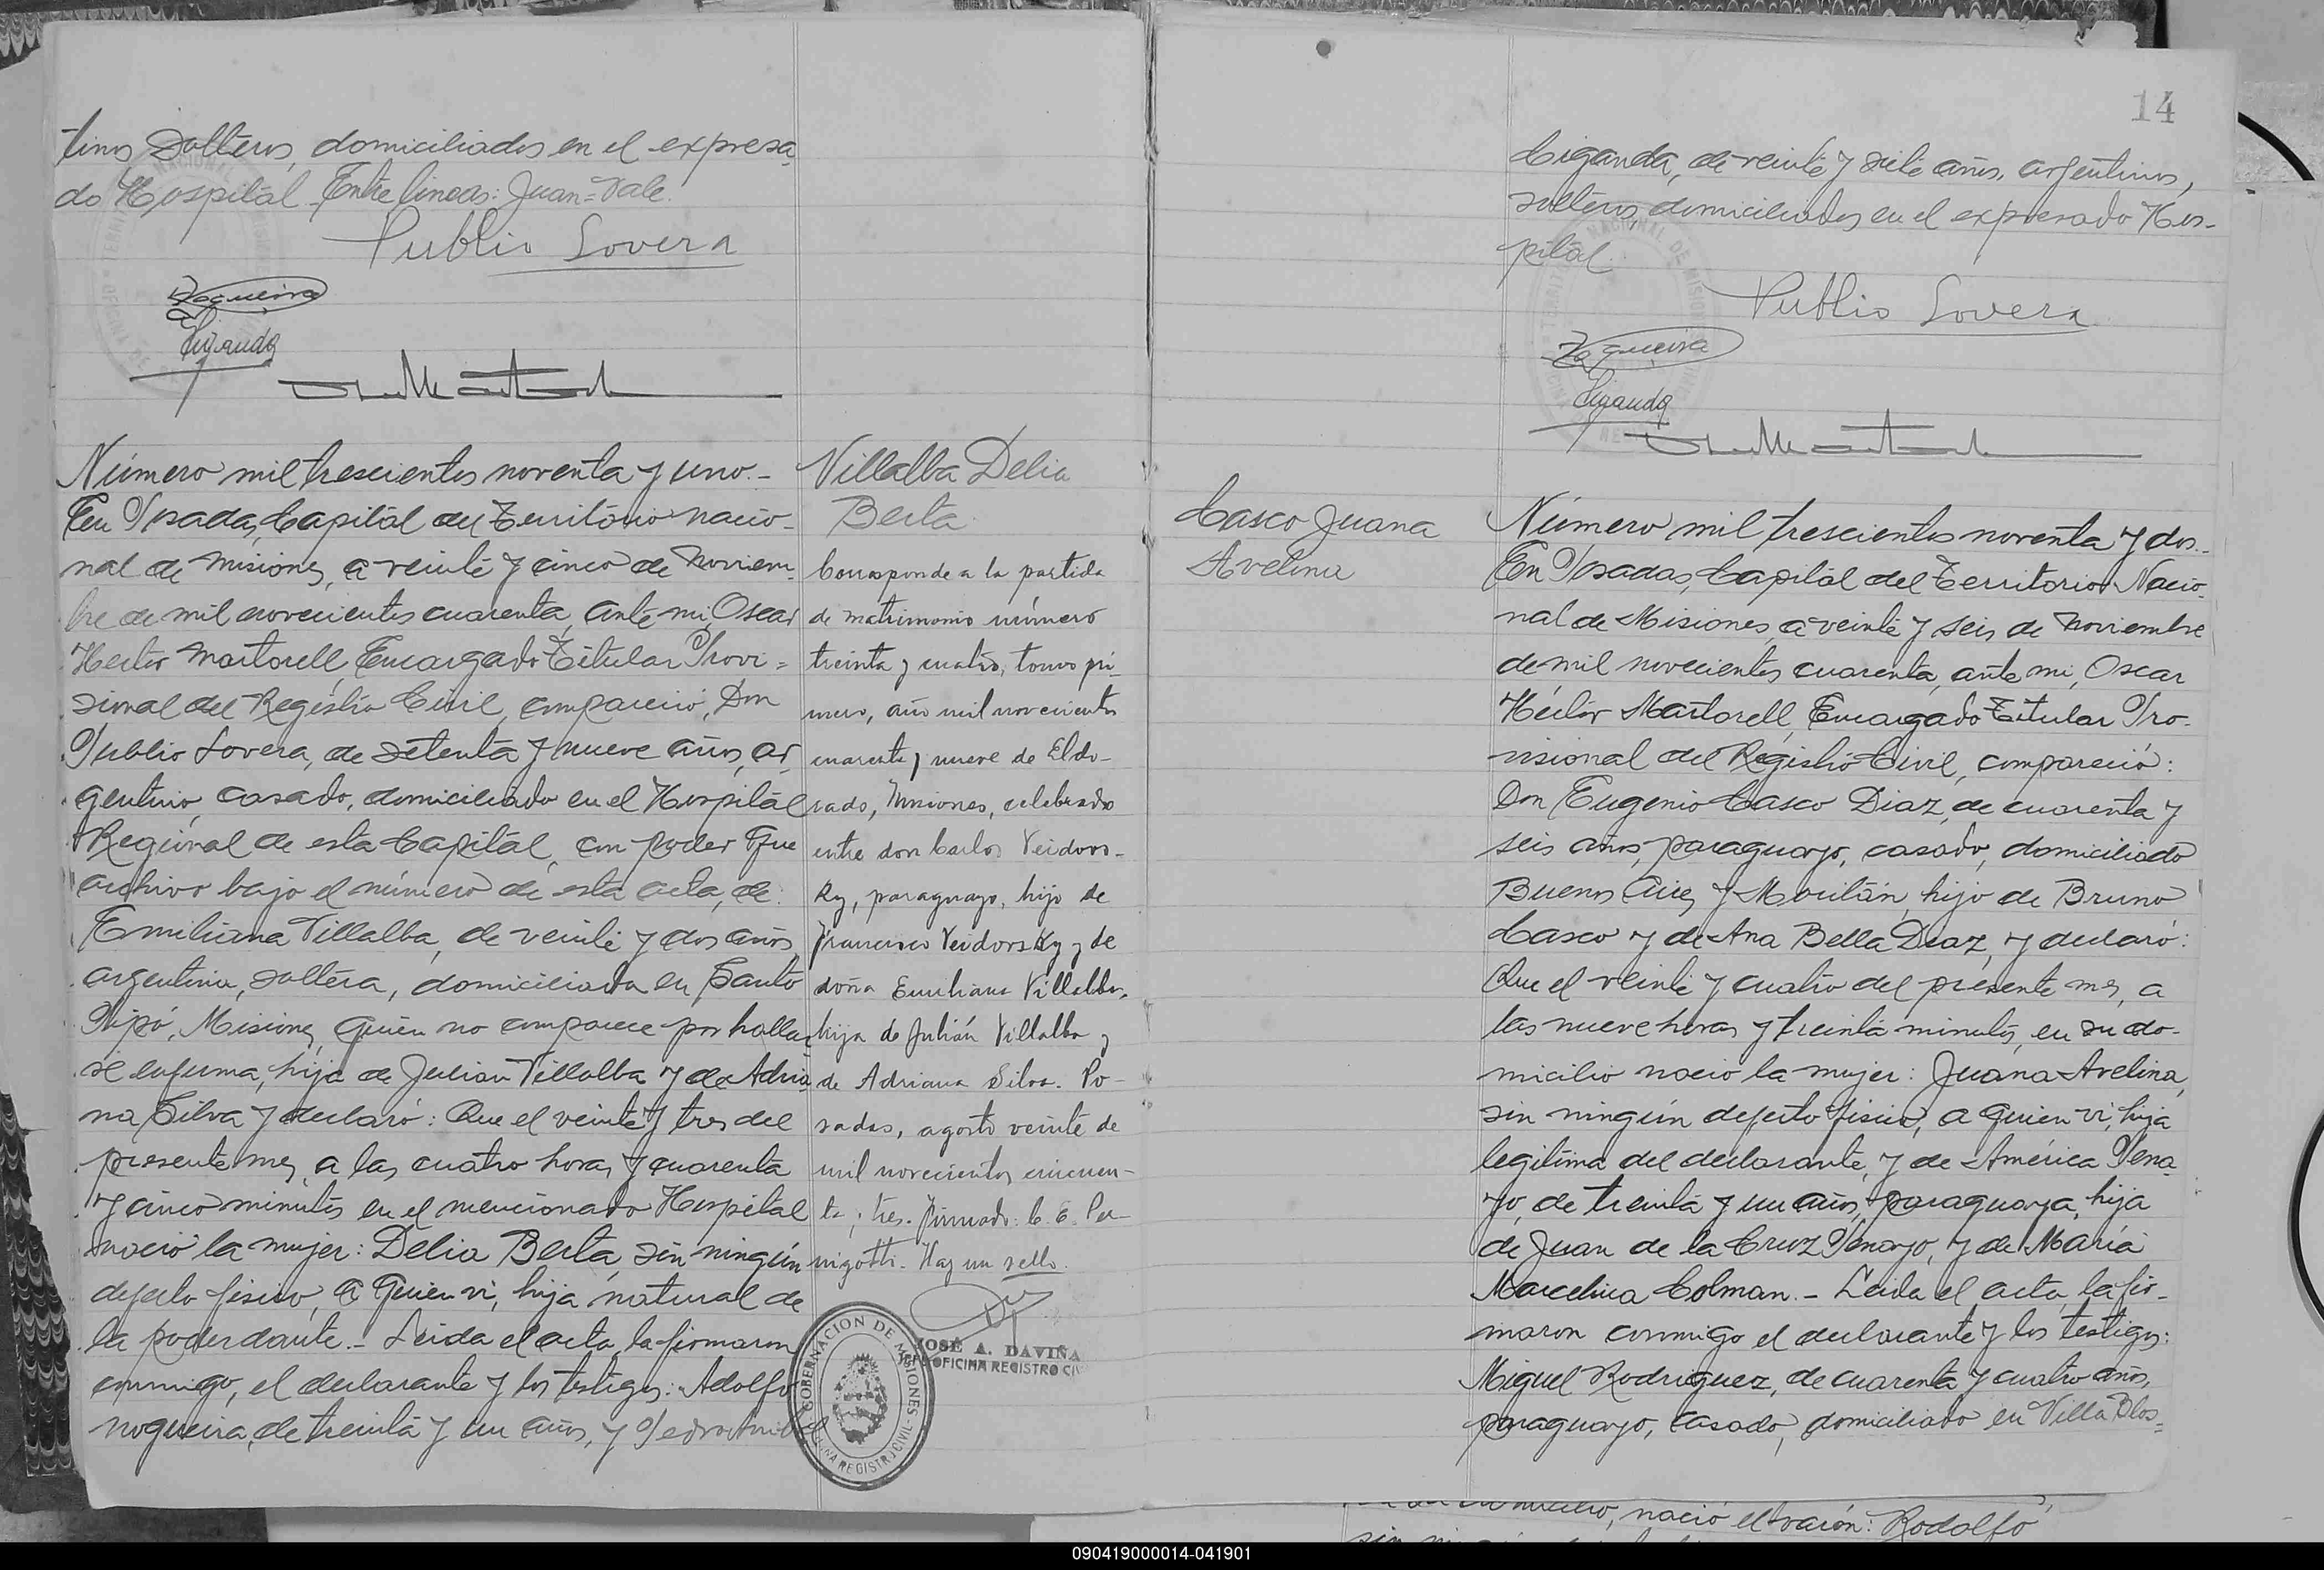 tinos solteros, domiciliados en el expresa-
do Hospital. Entre lineas: Juan=Vale.
Publio Lovera
Nogueira
Ciganda
Número mil trescientos noventa y uno.-
En Posadas, Capital del Territorio nacio-
nal de Misiones, a veinte y cinco de Noviem-
bre de mil novecientos cuarenta, ante mi, Oscar
Hector Martorell, Encargado Titular Provi=
sional del Registro Civil, compareció, Don
Publio Lovera, de setenta y nueve años, ar-
gentino, casado, domiciliado en el Hospital
Regional de esta Capital, con poder que
archivo bajo el número de esta acta, de:
Emiliana Villalba, de veinte y dos años,
argentina, soltera, domiciliada en Santo
Pipó, Misiones, quien no comparece por hallar-
se enferma, hija de Julian Villalba y de Adria
na Silva y declaró: Que el veinte y tres del
presente mes, a las cuatro horas y cuarenta
y cinco minutos en el mencionado Hospital
nació la mujer: Delia Berta, sin ningún
defecto fisico, a quien vi, hija natural de
la poderdante.- Leida el acta, la firmaron
conmigo, el declarante y los testigos: Adolfo
nogueira, de treinta y un años, y Pedro
Villalba Delia
Berta
Corresponde a la partida
de matrimonio número
treinta y cuatro, tomo pri-
mero, año mil novecientos
cuarenta y nueve de Eldo-
rado, Misiones, celebrado
entre don Carlos Veidovs-
ky, paraguayo, hijo de
Francisco Veidovsky y de
doña Emiliana Villalba,
hija de Julián Villalba y
de Adriana Silva. Po-
sadas, agosto veinte de
mil novecientos cincuen-
ta y tres. Firmado: C. E. Per-
nigotti. Hay un sello.
JOSÉ A. DAVIÑA
JEFE OFICINA REGISTRO CI
GOBERNACION DE MISIONES
OFICINA REGISTRO CIVIL
14
Ciganda, de veinte y siete años, argentinos,
solteros, domiciliados en el expresado Hos-
pital.
Publio Lovera
Nogueira
Ciganda
Casco Juana
Avelina
Número mil trescientos noventa y dos.-
En Posadas, Capital del Territorio Nacio-
nal de Misiones, a veinte y seis de Noviembre
de mil novecientos cuarenta, ante mi, Oscar
Héctor Martorell, Encargado Titular Pro-
visional del Registro Civil, compareció:
Don Eugenio Casco Diaz, de cuarenta y
seis años, paraguayo, casado, domiciliado
Buenos Aires y Moritán, hijo de Bruno
Casco y de Ana Bella Diaz, y declaró:
Que el veinte y cuatro del presente mes, a
las nueve horas y treinta minutos, en su do-
micilio nació la mujer: Juana Avelina,
sin ningún defecto fisico, a quien vi, hija
legitima del declarante, y de América Pena-
yo, de treinta y un años, paraguaya, hija
de Juan de la Cruz Penayo, y de María
Marcelina Colman.- Leida el acta, la fir-
maron conmigo el declarante y los testigos:
Miguel Rodriguez, de cuarenta y cuatro años,
paraguayo, casado, domiciliado en Villa Blos=
domicilio, nació el varón: Rodolfo
090419000014-041901